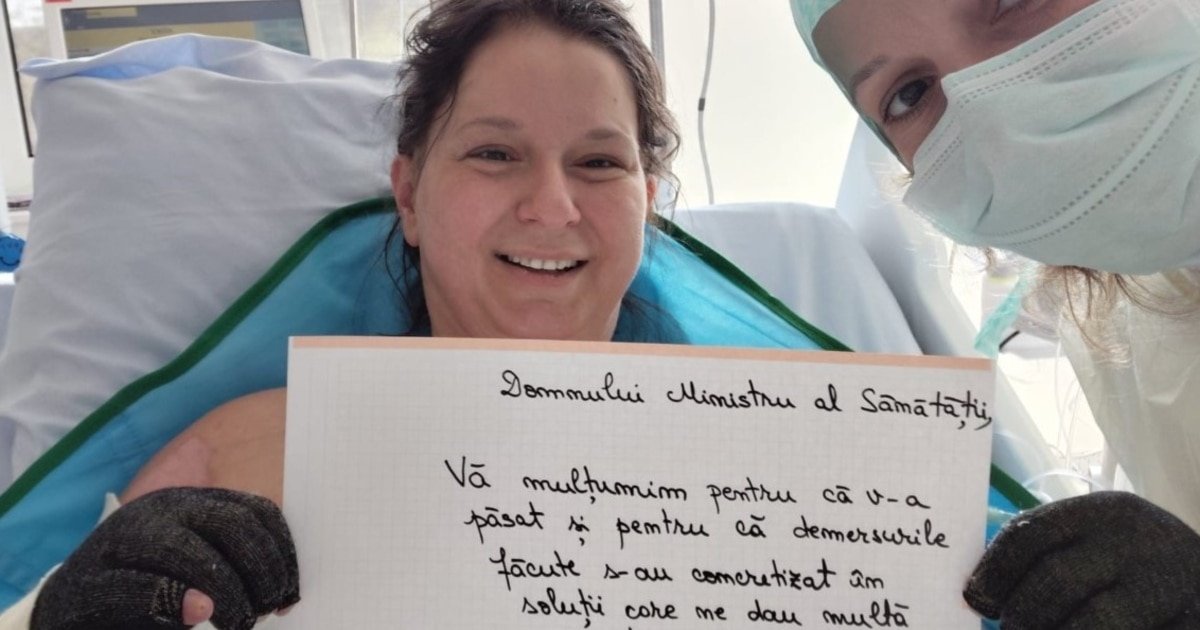 Domnului Ministru al Sănătății,
Vă mulțumim pentru că v-a
păsat și pentru că demersurile
făcute s-au concretizat în
soluții care ne dau multă